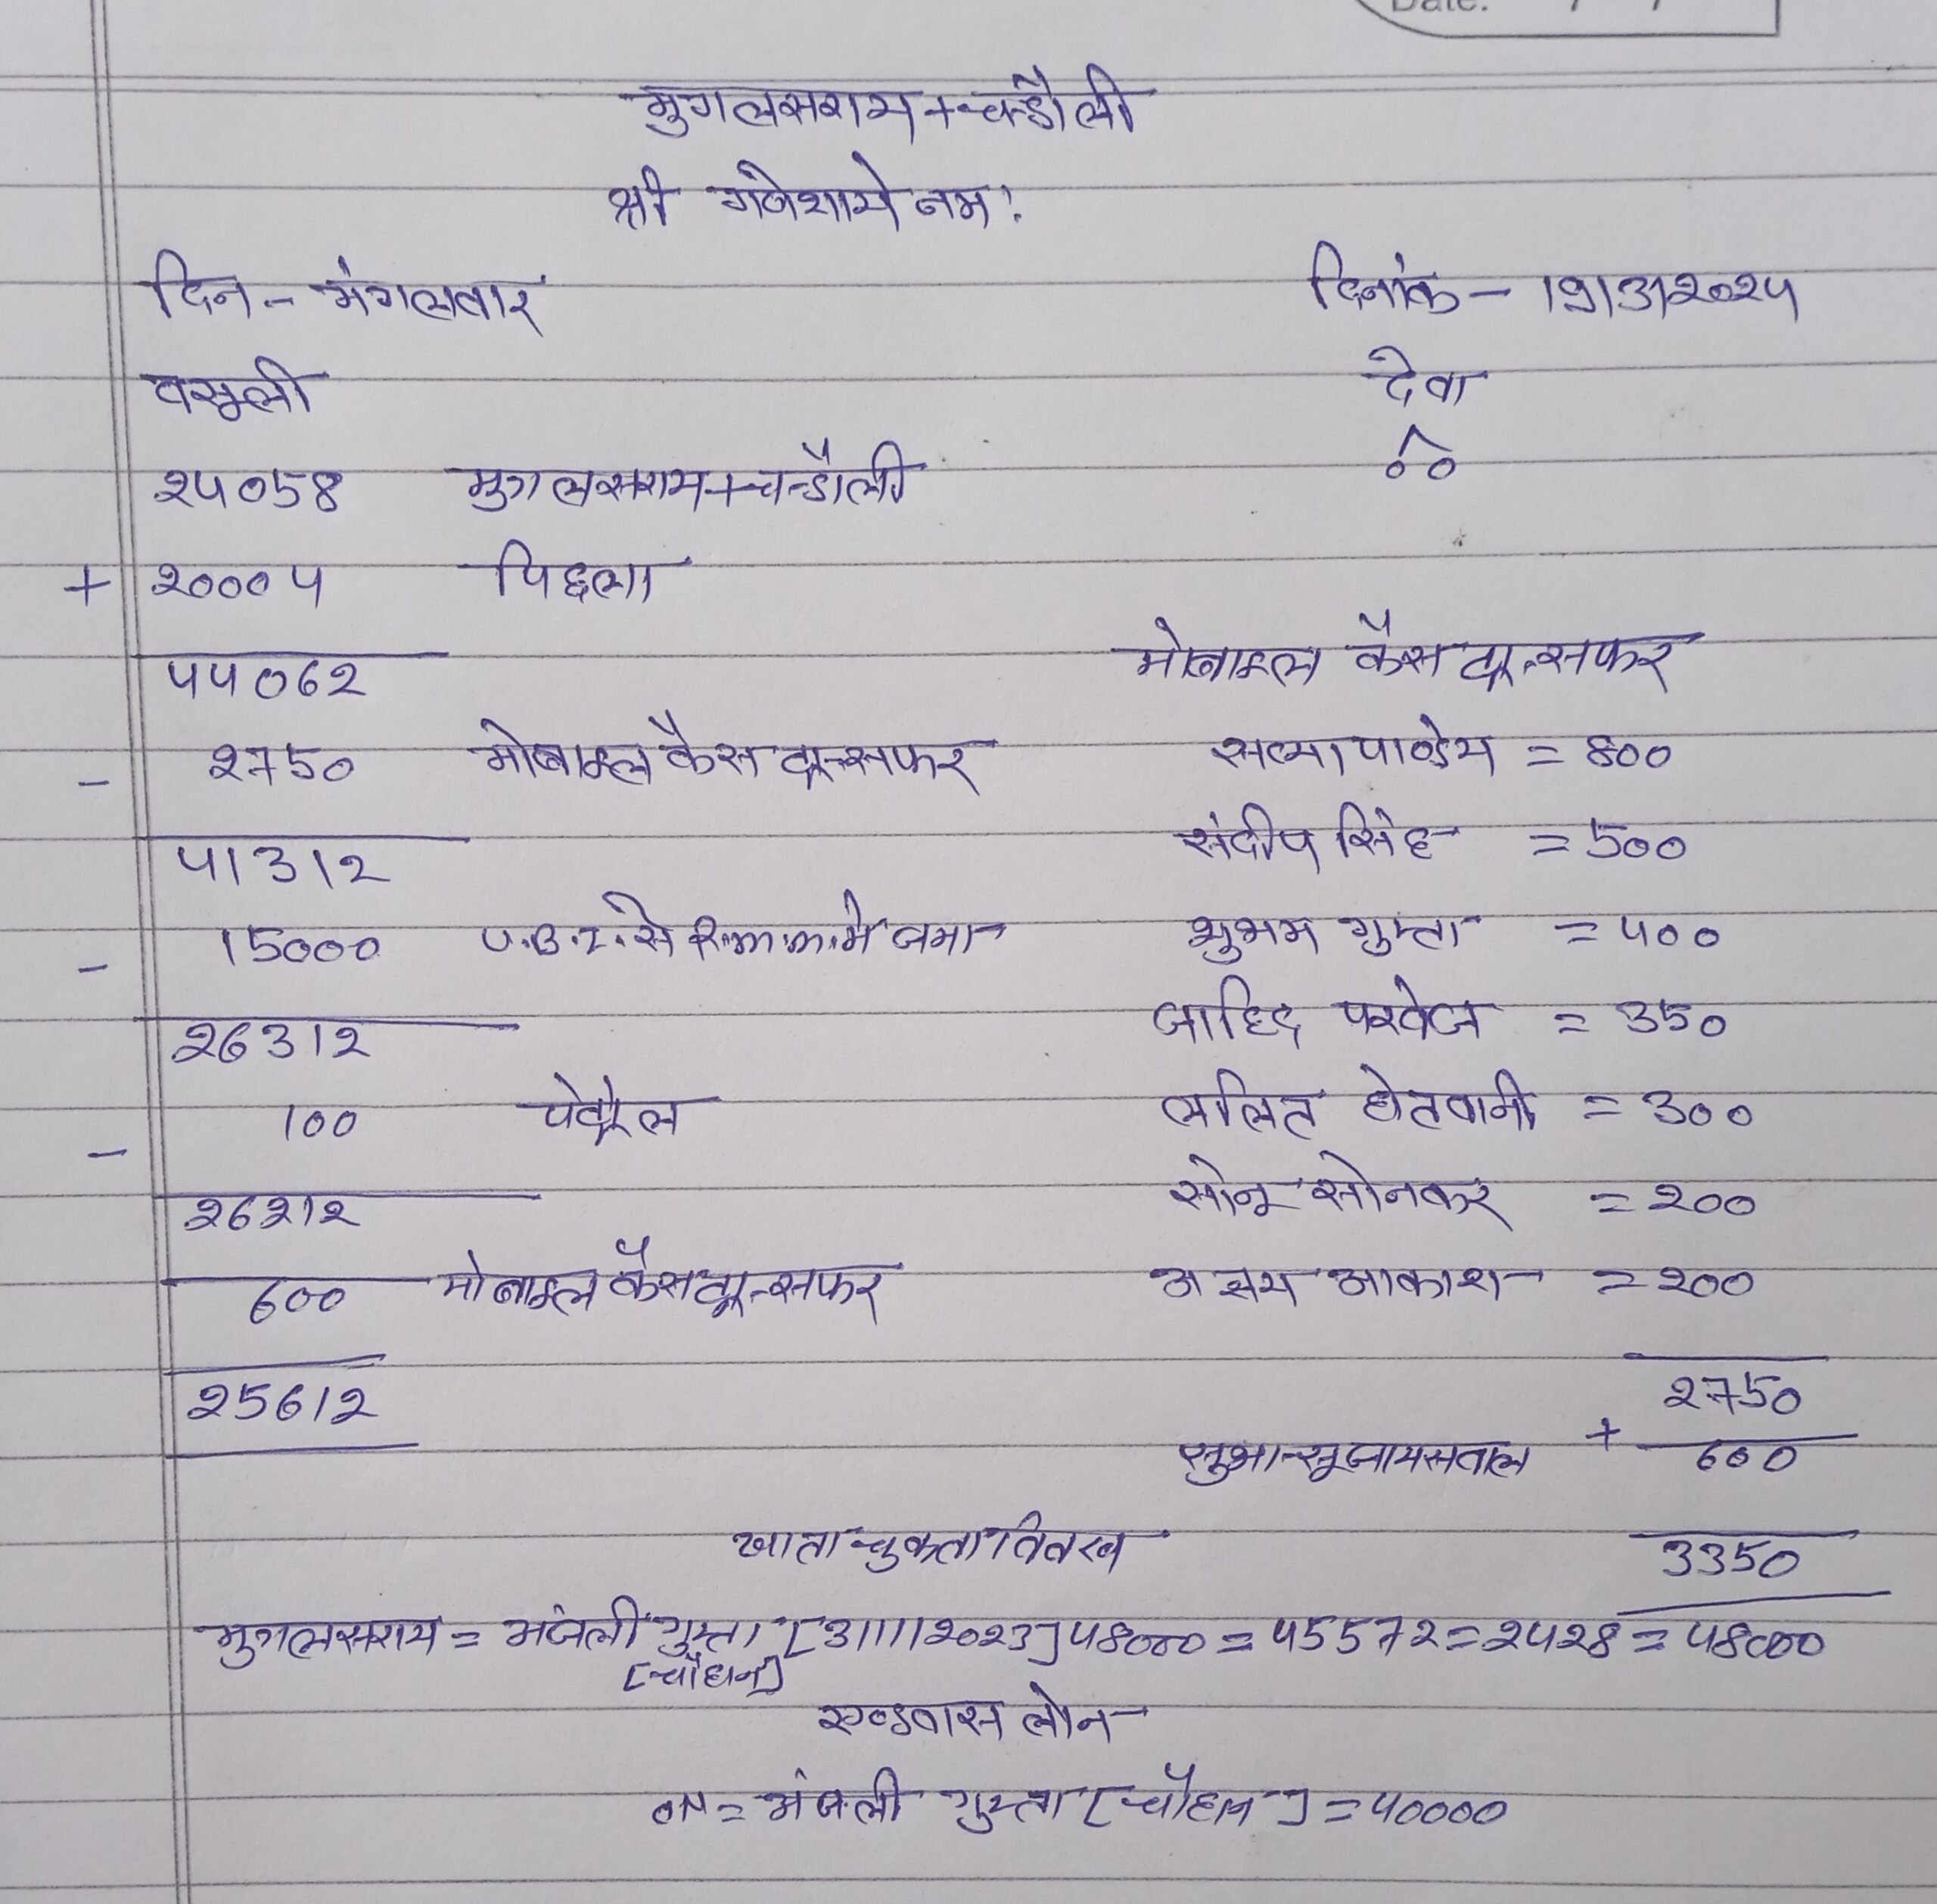 Date:
मुगलसराय + चन्डौली
श्री गणेशाये नमः
दिन - मंगलवार दिनांक - 19/3/2024
वसूली देवा
24058 मुगलसराय + चन्डौली
+ 20004 पिछला
44062 मोबाइल कैस ट्रान्सफर
- 2750 मोबाइल कैस ट्रान्सफर सत्या पाण्डेय = 800
41312 संदीप सिंह = 500
- 15000 U.B.I. से में जमा शुभम गुप्ता = 400
26312 जाहिद परवेज = 350
- 100 पेट्रोल ललित = 300
26212 सोनू सोनकर = 200
600 मोबाइल कैस ट्रान्सफर आकाश = 200
25612 2750
+ 600
खाता चुकता विवरण 3350
मुगलसराय = मंजली गुप्ता [3/11/2023] 48000 = 45572 = 2428 = 48000
[चौहान]
एडवास लोन
ON = मंजली गुप्ता [चौहान] = 40000